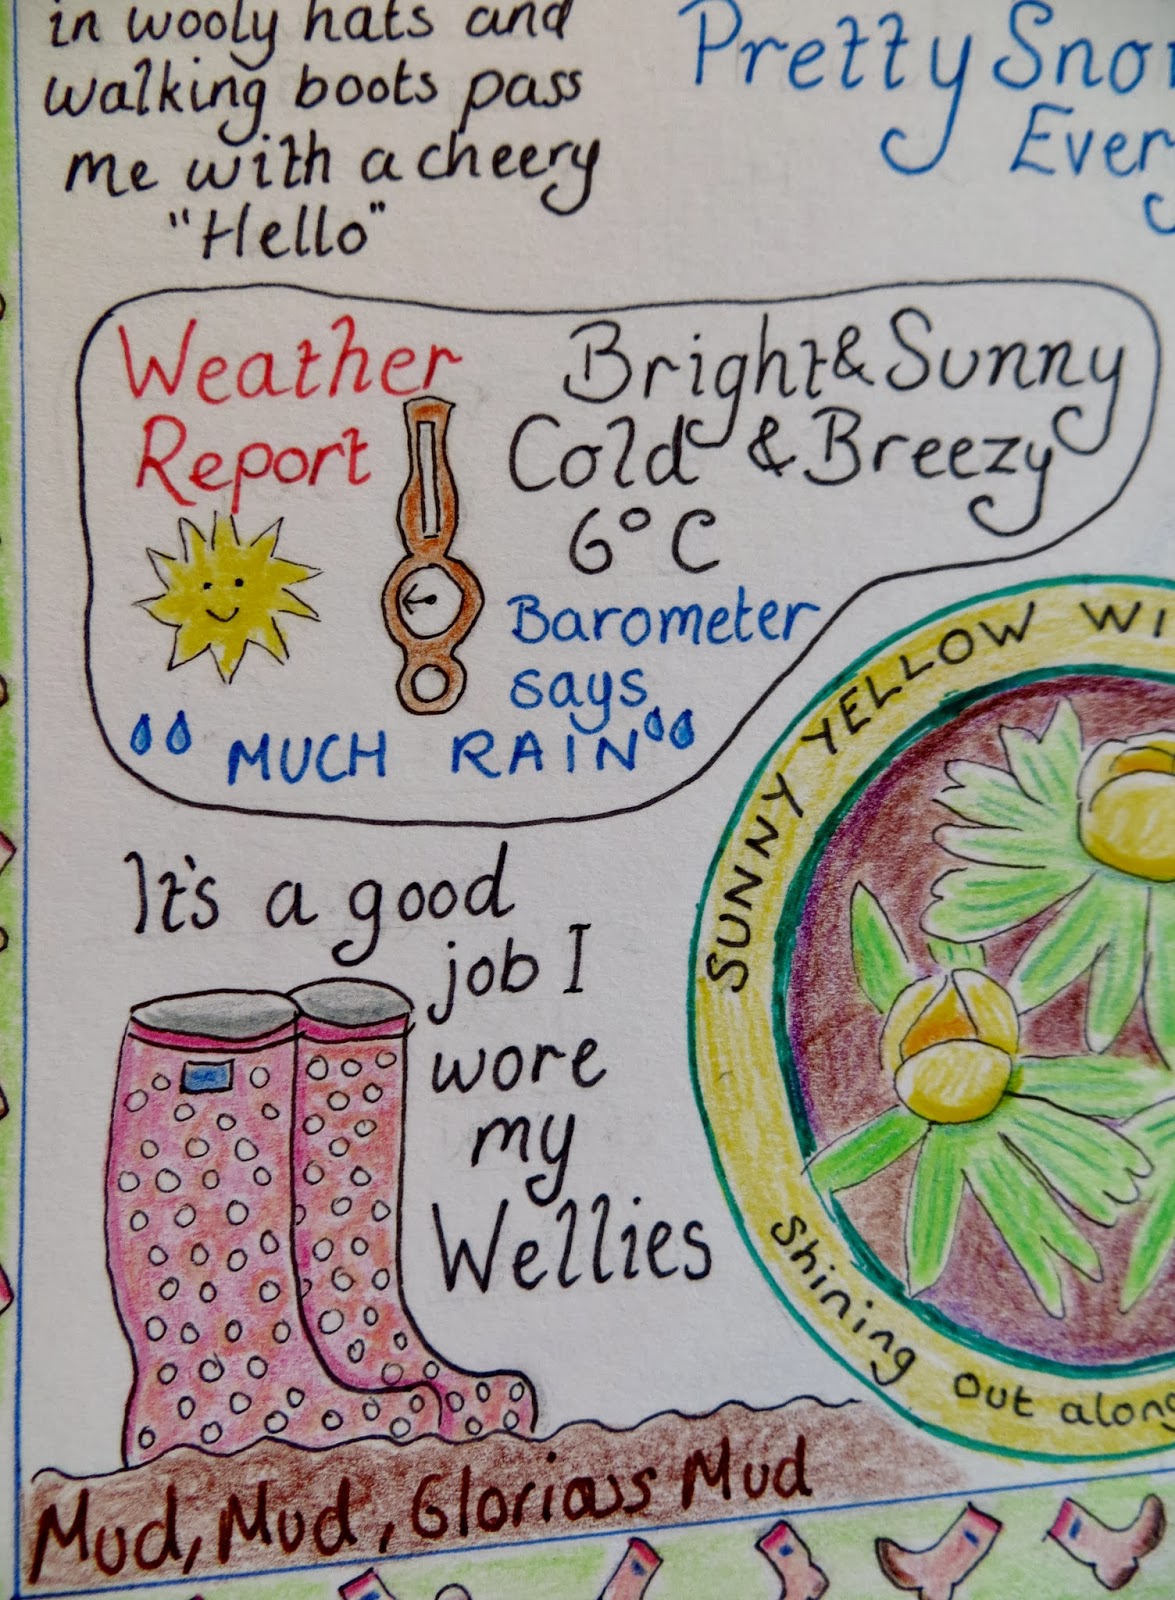 in wooly hats and
walking boots pass
me with a cheery
"Hello"
Pretty
Weather
Report
Bright & Sunny
Cold & Breezy
6°C
Barometer
says
MUCH RAIN
It's a good
job I
wore
my
Wellies
SUNNY YELLOW
Shining out
Mud, Mud, Glorious Mud